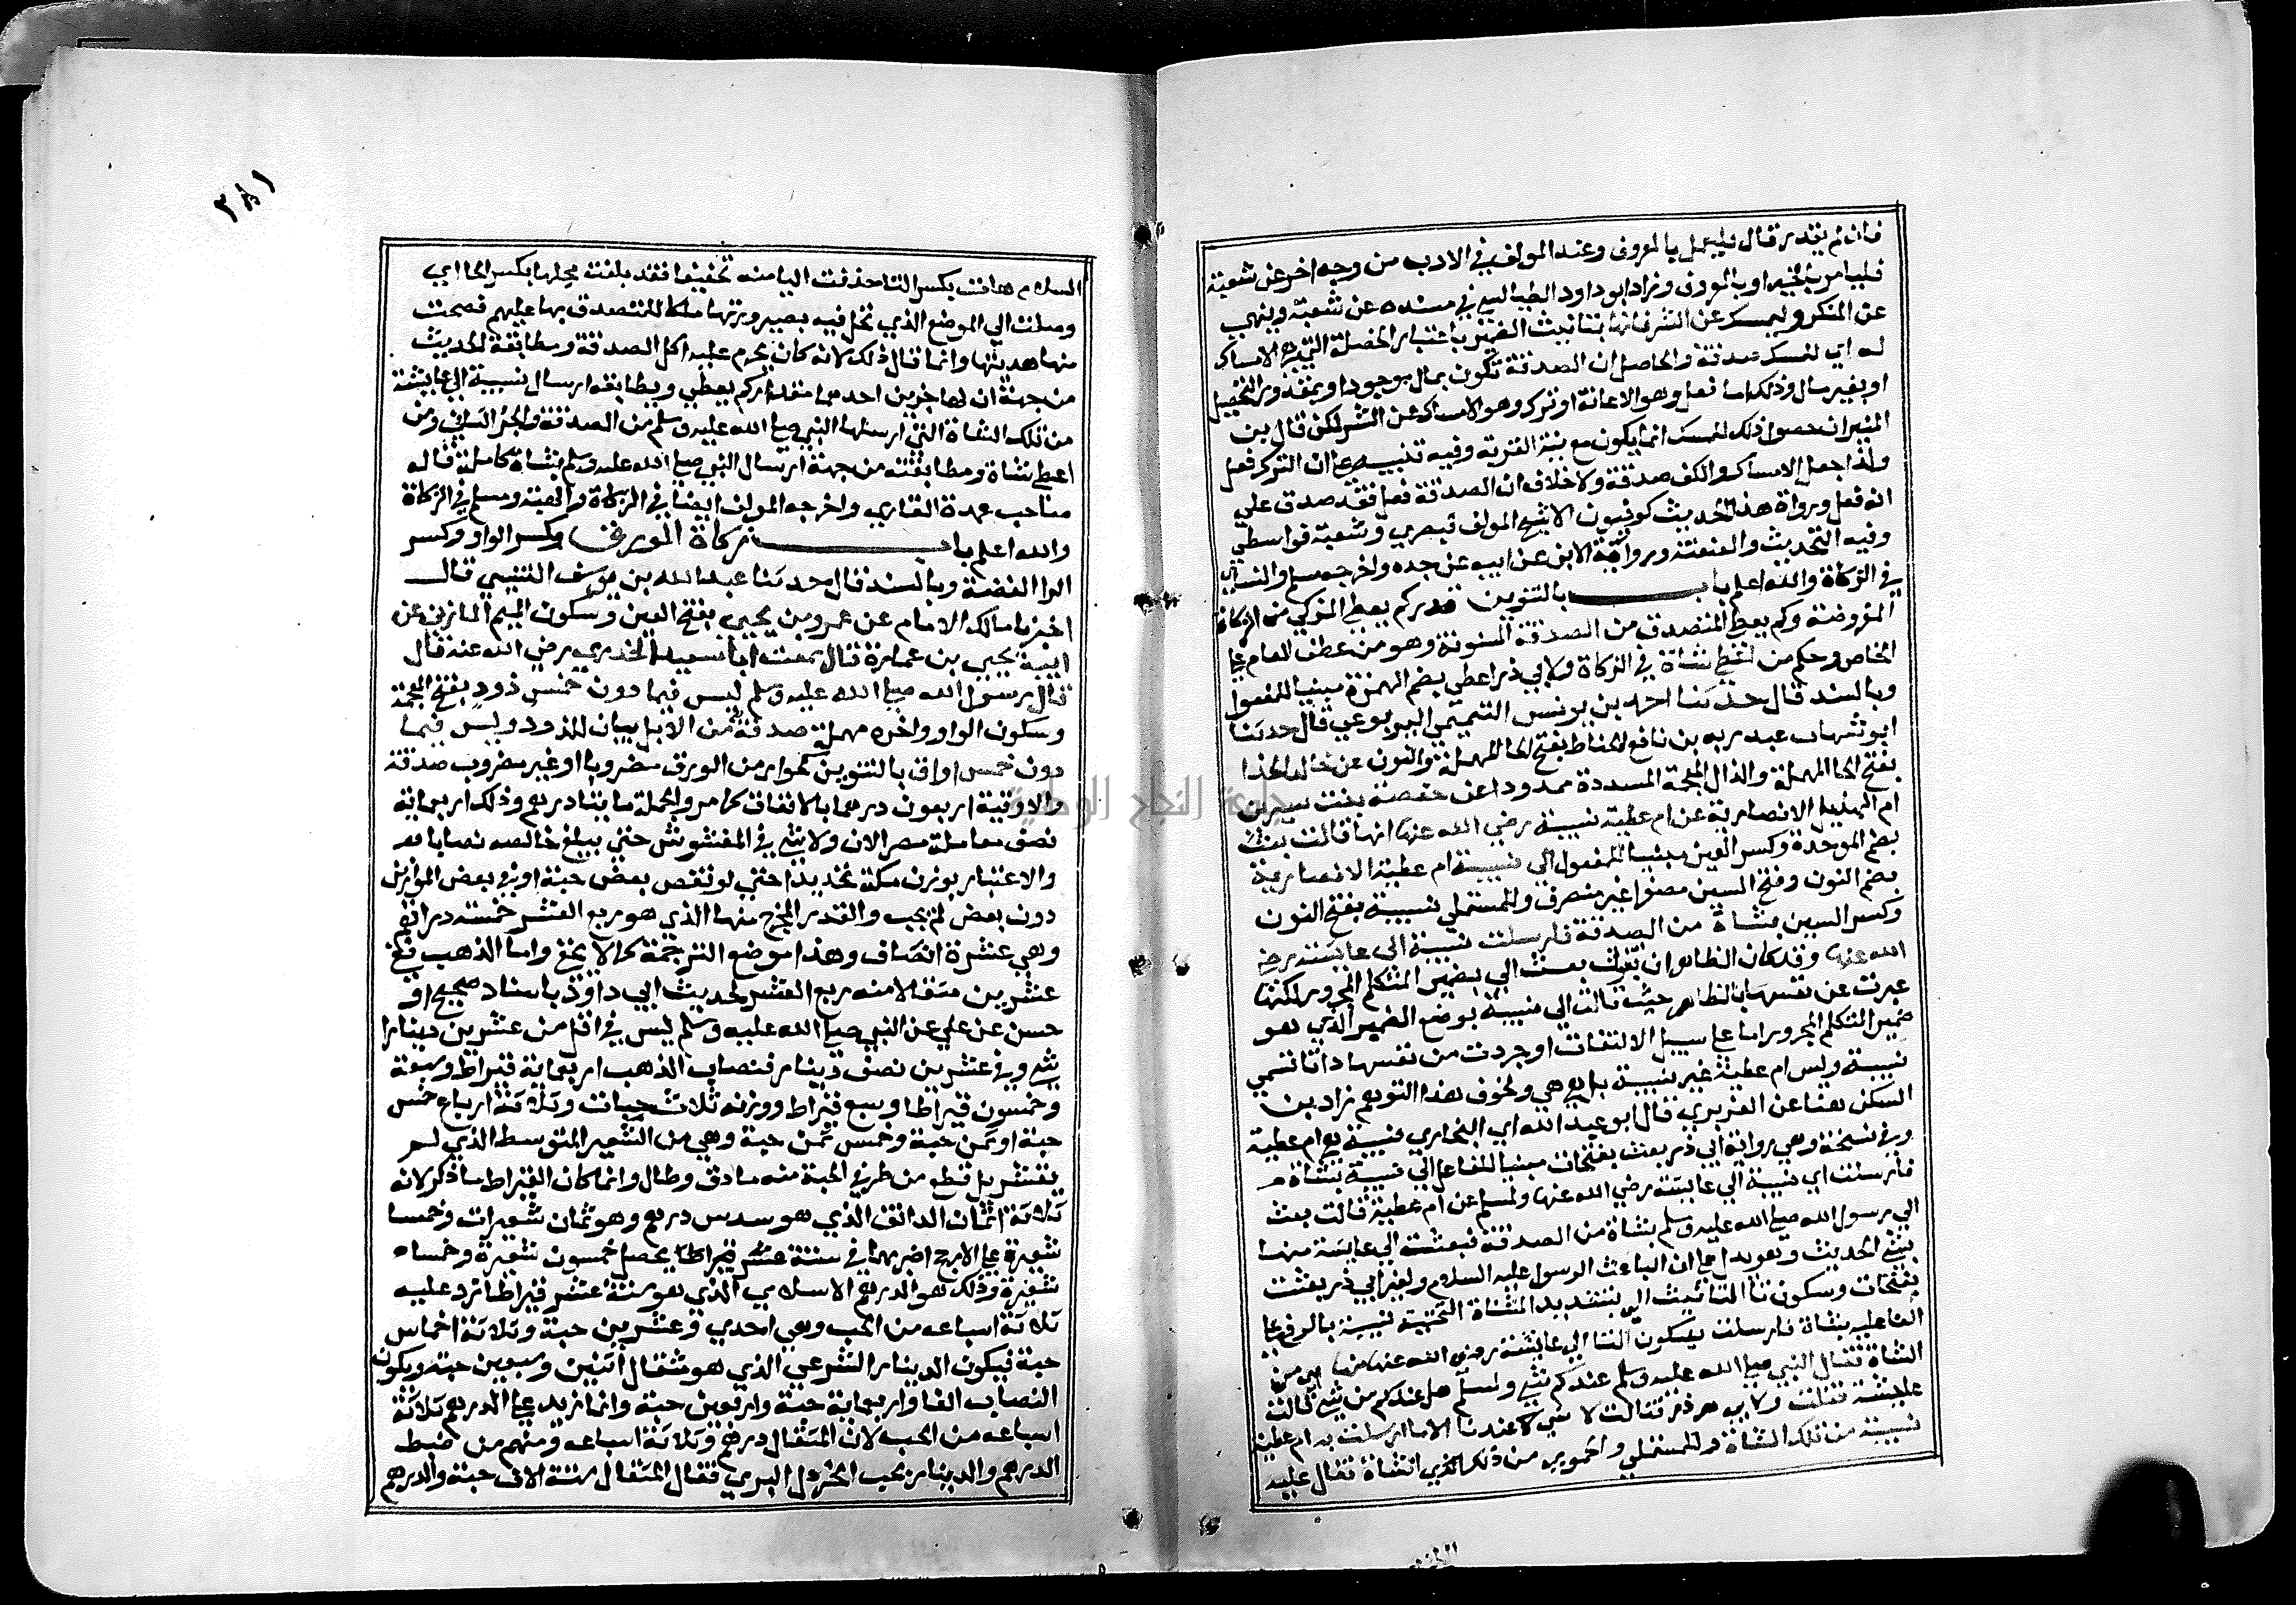 فان لم يقدر قال فليعمل بالمعروف وعند المولف في الادب من وجه اخر عن شعبة
فليامر بالخير او بالمعروف وزاد ابو داود الطيالسي في مسنده عن شعبة وينهى
عن المنكر وليمسك عن الشر فانها بتانيث الضمير باعتبار الخصلة التي هي الامساك
له اي للمسك صدقة والحاصل ان الصدقة تكون بمال موجود او بمقدور التحصيل
او بغير مال وذلك اما فعل وهو الاعانة او ترك وهو الامساك عن الشر لكن قال بن
المنير ان حصول ذلك للمسك انما يكون مع نية القربة وفيه تنبيه على ان الترك فعل
ولذا جعل الامساك والكف صدقة ولا خلاف ان الصدقة فعل فقد صدق على
انه فعل ورواة هذا الحديث كوفيون الا شيخ المولف فبصري وشعبة فواسطي
وفيه التحديث والعنعنة ورواية الابن عن ابيه عن جده واخرجه مسلم والنساي
في الزكاة والله اعلم باب بالتنوين قدر كم يعطي المزكي من الزكاة
المفروضة وكم يعطي المتصدق من الصدقة المسنونة وهو من عطف العام على
الخاص وحكم من اعطى شاة في الزكاة ولابي ذر اعطي بضم الهمزة مبنيا للمفعول
وبالسند قال حدثنا احمد بن يونس التميمي اليربوعي قال حدثنا
ابو شهاب عبد ربه بن نافع الحناط بفتح الحا المهملة والنون عن خالد الحذا
بفتح الحا المهملة والذال المعجمة المسددة ممدودا عن حفصة بنت سيرين
ام الهذيل الانصارية عن ام عطية نسيبة رضي الله عنها انها قالت بعث
بضم الموحدة وكسر العين مبنيا للمفعول الي نسيبة ام عطية الانصارية
بضم النون وفتح السين مصغرا غير منصرف وللمستملي نسيبة بفتح النون
وكسر السين بشاة من الصدقة فارسلت نسيبة الى عايشة رضي
الله عنها وقد كان الظاهر ان تقول بعث الي بضمير المتكلم المجرور لكنها
عبرت عن نفسها بالظاهر حيث قالت الي نسيبة بوضع الضمير الذي هو
ضمير المتكلم المجرور اما على سبيل الالتفات او جردت من نفسها ذاتا تسمي
نسيبة وليس ام عطية غير نسيبة بل هي هي ولخوف هذا التوهم زاد بن
السكن هنا عن الفربري قال ابو عبد الله اي البخاري نسيبة هي ام عطية
وفي نسخة وهي رواية ابي ذر بعث بفتحات مبنيا للفاعل الي نسيبة بشاة
فارسلت اي نسيبة الي عايشة رضي الله عنها ولمسلم عن ام عطية قالت بعث
الي رسول الله صلى الله عليه وسلم بشاة من الصدقة فبعثت الي عايشة منها
بشي الحديث وهو يدل على ان الباعث الرسول عليه السلام ولغير ابي ذر بعثت
بفتحات وسكون تا التانيث الي بتشديد المثناة التحتية نسيبة بالرفع على
الفاعلية بشاة فارسلت بسكون التا الي عايشة رضي الله عنها منها اي من
الشاة فقال النبي صلى الله عليه وسلم عندكم شي ولمسلم هل عندكم من شي قالت
عايشة فقلت ولابي ذر فقالت لا شي عندنا الا ما ارسلت به ام عطية
نسيبة من تلك الشاة وللمستملي والحموي من ذلك الشاة فقال عليه
٢٨١
السلام هات بكسر التا حذفت اليا منه تخفيفا فقد بلغت محلها بكسر الحا اي
وصلت الي الموضع الذي تحل فيه بصيرورتها ملكا للمتصدق بها عليهم فصحت
منها هديتها وانما قال ذلك لانه كان يحرم عليه اكل الصدقة ومطابقة الحديث
من جهة ان لها جزين احدهما مقدار كم يعطي ويطابقه ارسال نسيبة الي عايشة
من تلك الشاة التي ارسلها النبي صلى الله عليه وسلم من الصدقة والجز الثاني ومن
اعطى شاة ومطابقته من جهة ارسال النبي صلى الله عليه وسلم بشاة كاملة قاله
صاحب عمدة القاري واخرجه المولف ايضا في الزكاة والهبة ومسلم في الزكاة
والله اعلم باب زكاة الورق وكسر الواو وكسر
الرا الفضة وبالسند قال حدثنا عبد الله بن يوسف التنيسي قال
اخبرنا مالك الامام عن عمرو بن يحيي بفتح العين وسكون الميم المازني عن
ابيه يحيي بن عمارة قال سمعت ابا سعيد الخدري رضي الله عنه قال
قال رسول الله صلى الله عليه وسلم ليس فيما دون خمس ذود بفتح المعجمة
وسكون الواو واخره مهملة صدقة من الابل بيان للذود وليس فيما
دون خمس اواق بالتنوين كجوار من الورق مضروبا او غير مضروب صدقة
والاوقية اربعون درهما بالاتفاق كما مر والجملة مايتا درهم وذلك اربعماية
نصف معاملة مصر الان ولا شي في المغشوش حتي يبلغ خالصه نصابا
والاعتبار بوزن مكة تحديدا حتي لو نقص بعض حبة او في بعض الموازين
دون بعض لم يجب والقدر المخرج منها الذي هو ربع العشر خمسة دراهم
وهي عشرة انصاف وهذا موضع الترجمة كما لا يخفى واما الذهب ففي
عشرين مثقالا منه ربع العشر لحديث ابي داود باسناد صحيح او
حسن عن علي عن النبي صلى الله عليه وسلم ليس في اقل من عشرين دينارا
شي وفي عشرين نصف دينار فنصاب الذهب اربعماية قيراط وسبعة
وخمسون قيراطا وسبع قيراط ووزنه ثلاث حبات وثلاثة ارباع خمس
حبة او ثمن حبة وخمس ثمن حبة وهي من الشعير المتوسط الذي لم
يقشر بل قطع من طرفي الحبة منه ما دق وطال وانما كان القيراط ما ذكر لانه
ثلاثة اثمان الدانق الذي هو سدس درهم وهو ثمان شعيرات وخمسا
شعيرة على الارجح اضربها في ستة عشر قيراطا يحصل خمسون شعيرة وخمساه
شعيرة وذلك هو الدرهم الاسلامي الذي هو ستة عشر قيراطا زد عليه
ثلاثة اسباعه من الحب وهي احدي وعشرين حبة وثلاثة اخماس
حبة فيكون الدينار الشرعي الذي هو مثقال اثنين وسبعين حبة ويكون
النصاب الفا واربعماية حبة واربعين حبة وانما زيد على الدرهم ثلاثة
اسباعه من الحب لان المثقال درهم وثلاثة اسباعه ومنهم من ضبط
الدرهم والدينار بحب الخردل البري فقال المثقال ستة الاف حبة والدرهم
جامعة النجاح الوطنية